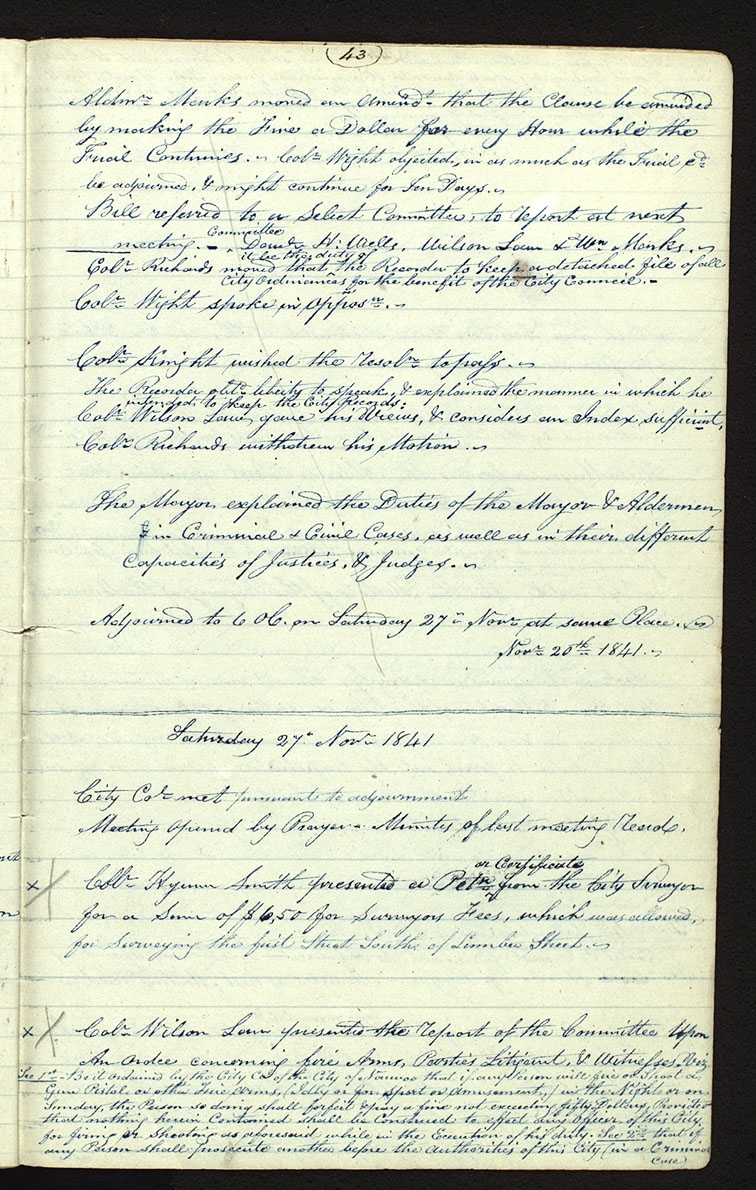 (43)
Aldmn. Marks moved an amendt. that the Clause be amended
by making the Fine a Dollar for every Hour while the
Trial Continues. Colr. Wight objected, in as much as the Trial cd.
be adjourned, & might continue for Ten Days.
Bill referred to a Select Committee, to report at next
Committee
meeting. – Daniel H. Wells, Wilson Law & Wm. Marks.
it be the duty of
Colr. Richards moved that the Recorder to keep a detached file of all
City Ordinances for the benefit of the City Council. –
Colr. Wight spoke in opposn. –
Colr. Knight wished the resoln. to pass.
The Recorder obtd. liberty to speak, & explained the manner in which he
intended to keep the City Records:
Colr. Wilson Law, gave his Views, & considers an Index sufficient,
Colr. Richards withdrew his Motion.
The Mayor explained the Duties of the Mayor & Aldermen,
in Criminal & Civil Cases, as well as in their different
Capacities of Justices, & Judges.
Adjourned to 6 OC. on Saturday 27th Novr. at same Place.
Novr. 20th 1841.
Saturday 27th Novr. 1841
City Col. met pursuant to adjournment
Meeting opened by Prayer – Minutes of last meeting Read.
or Certificate
x Colr. Hyrum Smith presented a Petn. from the City Surveyor
for a Sum of $6,50 for Surveyors Fees, which was allowed,
for Surveying the first Street South, of Lumber Street.
x Colr. Wilson Law presented the report of the Committee Upon
An Ordce concerning fire Arms, Parties Litigant, & Witnesses, Viz
Sec 1st. – Be it ordained by the City Cl. of the City of Nauvoo that if any Person will fire or Shoot a,
Gun Pistol, or other Fire Arms, (Idly or for sport or Amusement,) in the Night or on
Sunday, the Person so doing shall forfeit & pay a fine not exceeding fifty Dollars, Provided
that nothing herein Contained shall be construed to effect any Officer of this City,
for firing or Shooting as aforesaid while in the Execution of his duty. Sec 2nd. that if
any Person shall prosecute another before the authorities of this City (in a Criminal
Case)